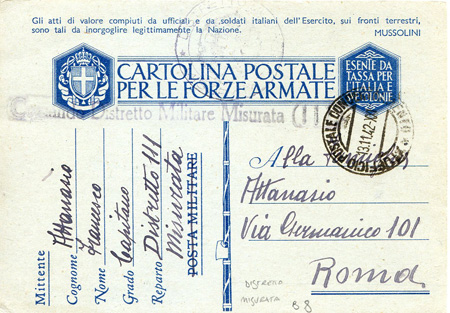 Gli atti di valore compiuti da ufficiali e da soldati italiani dell'Esercito, sui fronti terrestri,
sono tali da inorgoglire legittimamente la Nazione.
MUSSOLINI
CARTOLINA POSTALE
PER LE FORZE ARMATE
ESENTE DA
TASSA PER
L'ITALIA E
COLONIE
Distretto Militare Misurata
13.11.42
Alla
Attanasio
Via Germanico 101
Roma
Mittente
Cognome Attanasio
Nome Francesco
Grado Capitano
Reparto Distretto 111
Misurata
POSTA MILITARE
DISTRETTO
MISURATA
B.8